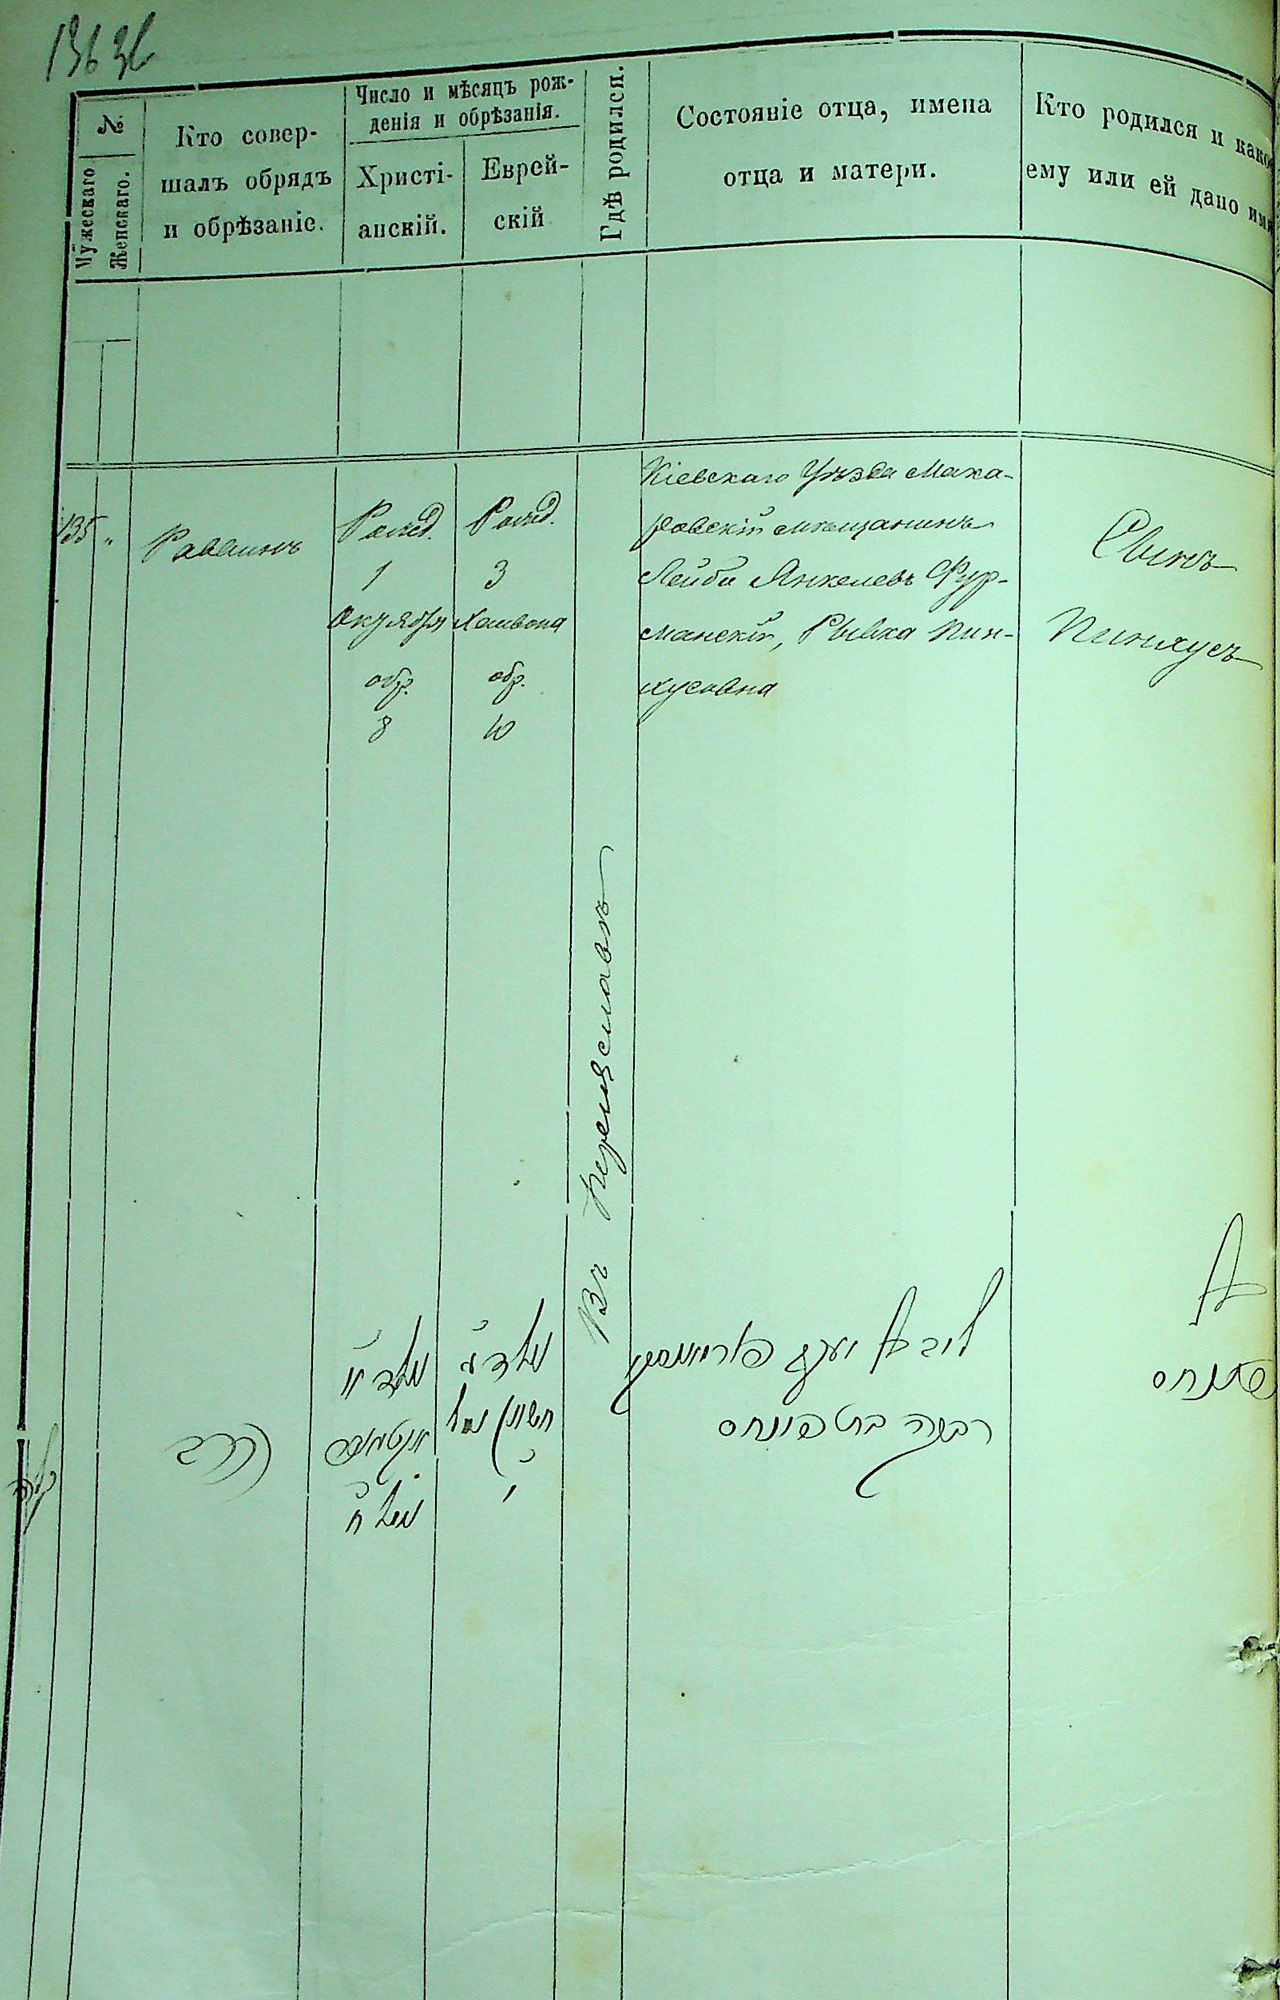 №
Мужескаго
Женскаго.
Кто совер-
шалъ обрядъ
и обрѣзаніе.
Число и мѣсяцъ рож-
денія и обрѣзанія.
Христі-
анскій.
Еврей-
скій
Гдѣ родился.
Состояніе отца, имена
отца и матери.
Кто родился и како
ему или ей дано имя
135
"
Раввинъ
Рожд.
1
Октября
обр.
8
Рожд.
3
Хешвона
обр.
10
Въ Переяславѣ
Кіевскаго Уѣзда Мака-
ровскій мѣщанинъ
Лейба Янкелевъ Фур-
манскій, Рывка Пин-
хусовна
Сынъ
Пинхусъ
הרב
נולד
חשון נמול
י
רבקה בת פינחס
פינחס